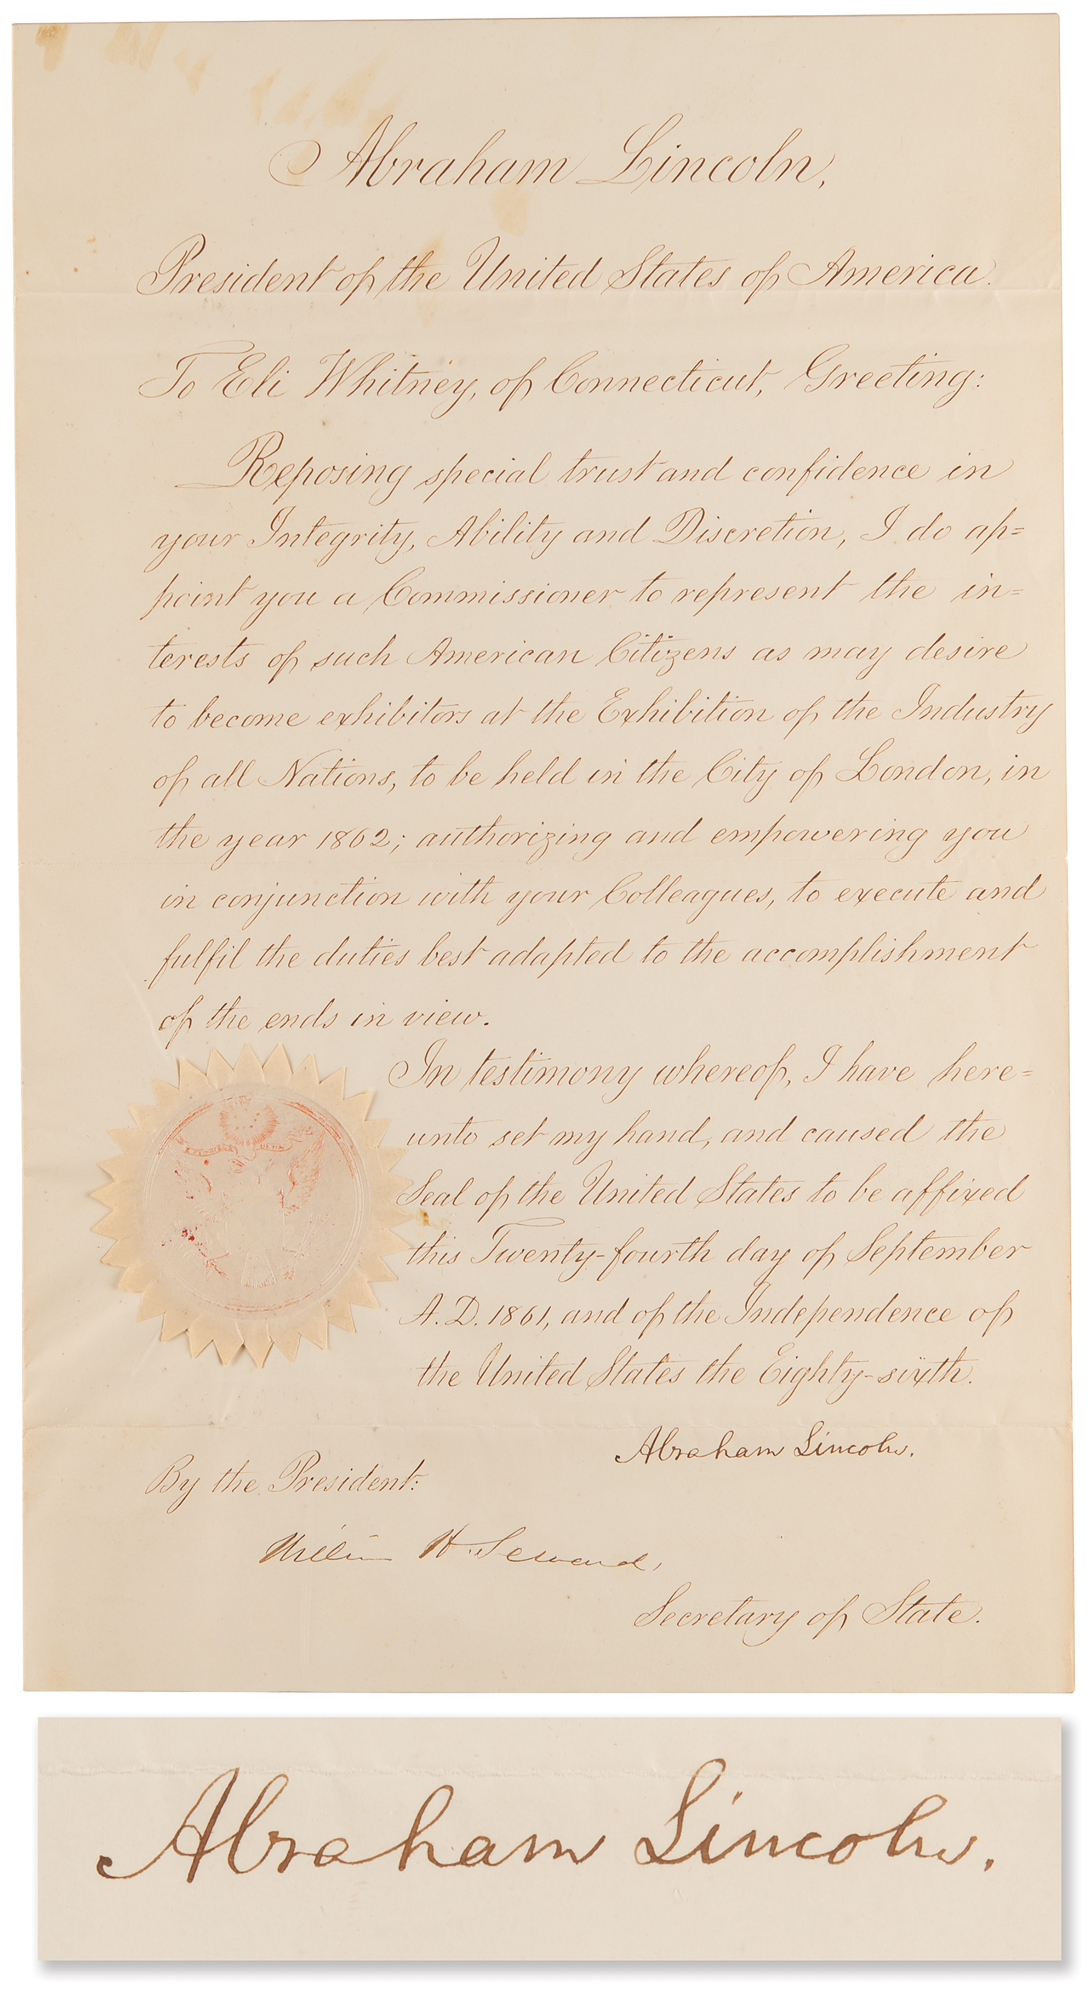 Abraham Lincoln,
President of the United States of America.
To Eli Whitney, of Connecticut, Greeting:
Reposing special trust and confidence in
your Integrity, Ability and Discretion, I do ap=
point you a Commissioner to represent the in=
terests of such American Citizens as may desire
to become exhibitors at the Exhibition of the Industry
of all Nations, to be held in the City of London, in
the year 1862; authorizing and empowering you
in conjunction with your Colleagues, to execute and
fulfil the duties best adapted to the accomplishment
of the ends in view.
In testimony whereof, I have here=
unto set my hand, and caused the
Seal of the United States to be affixed
this Twenty-fourth day of September
A.D. 1861, and of the Independence of
the United States the Eighty-sixth.
Abraham Lincoln.
By the President:
William H. Seward,
Secretary of State.
Abraham Lincoln.